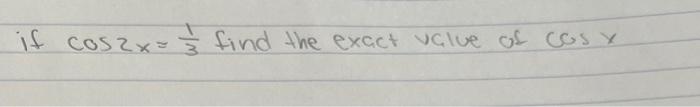 if cos2x = 1/3 find the exact value of cos x